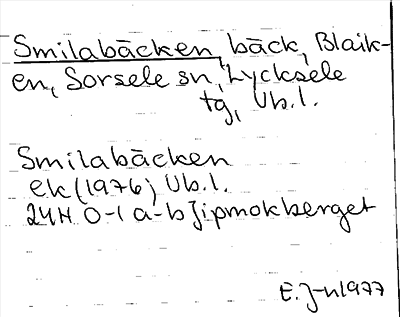 Smilabäcken, bäck, Blaik-
en, Sorsele sn, Lycksele
tg, Vb.l.
Smilabäcken
ek (1976) Vb.l.
24H 0-1 a-b Jipmokberget
E. J-n 1977